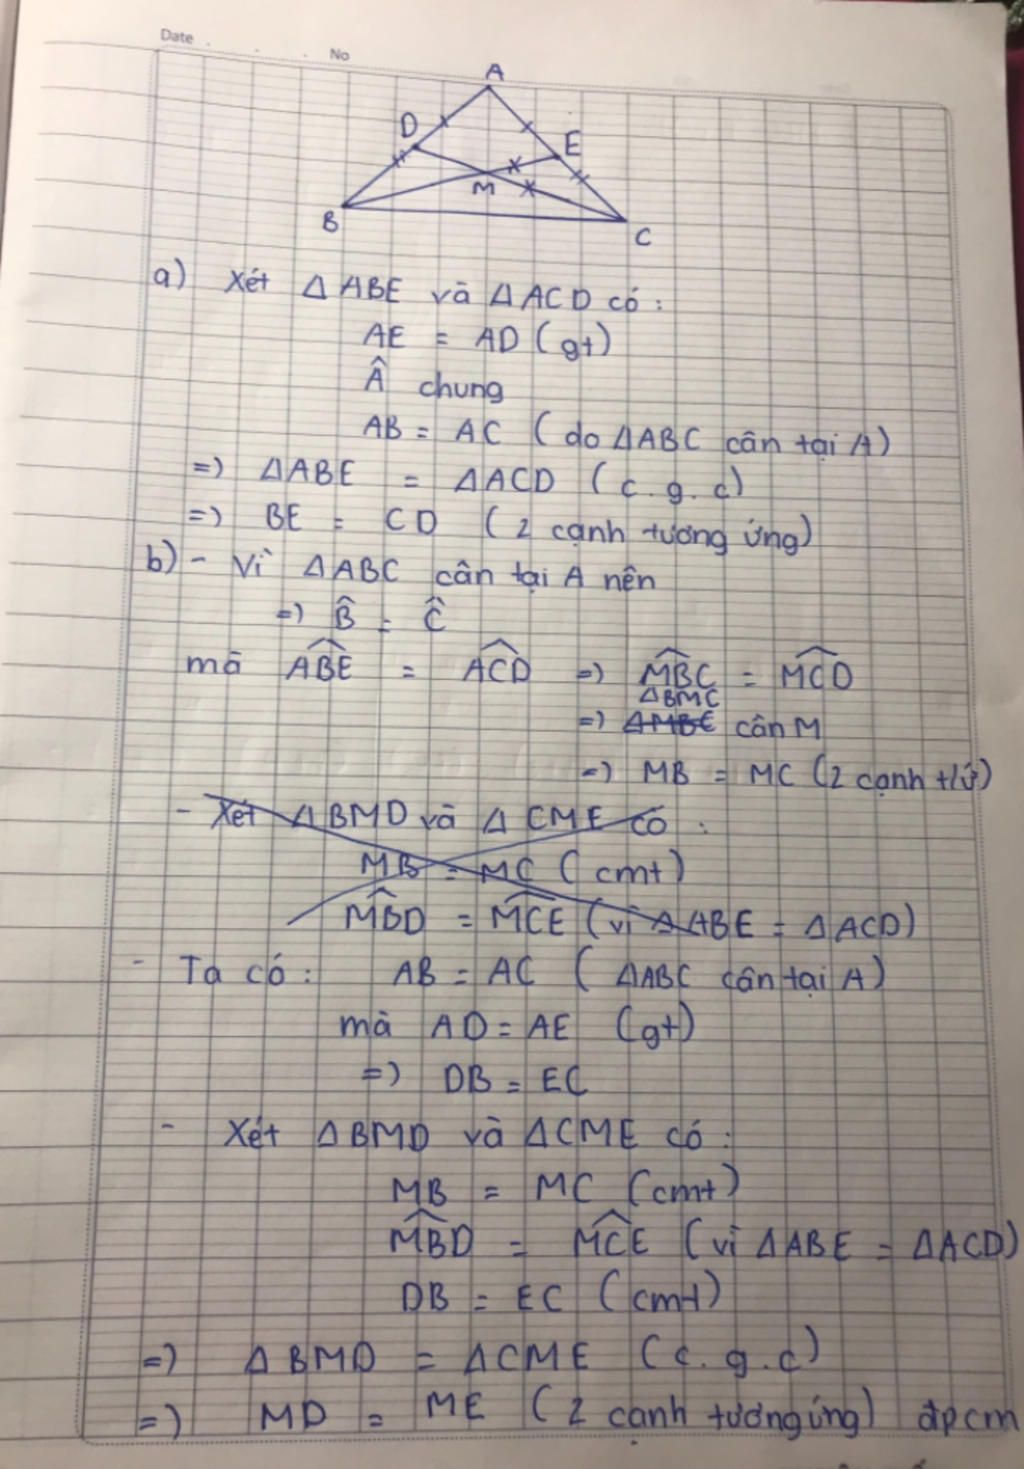 Date
No
A
D
E
M
B
C
a) Xét ΔABE và ΔACD có:
AE = AD (gt)
Â chung
AB = AC (do ΔABC cân tại A)
=) ΔABE = ΔACD (c.g.c)
=) BE = CD (2 cạnh tương ứng)
b) - Vì ΔABC cân tại A nên
=) B̂ = Ĉ
mà ABE = ACD =) MBC = MCD
ΔBMC
=) ΔMBE cân M
=) MB = MC (2 cạnh t/ứ)
- Xét ΔBMD và ΔCME có:
MB = MC (cmt)
MBD = MCE (vì ΔABE = ΔACD)
- Ta có: AB = AC (ΔABC cân tại A)
mà AD = AE (gt)
=) DB = EC
- Xét ΔBMD và ΔCME có:
MB = MC (cmt)
MBD = MCE (vì ΔABE = ΔACD)
DB = EC (cmt)
=) ΔBMD = ΔCME (c.g.c)
=) MD = ME (2 cạnh tương ứng) đpcm